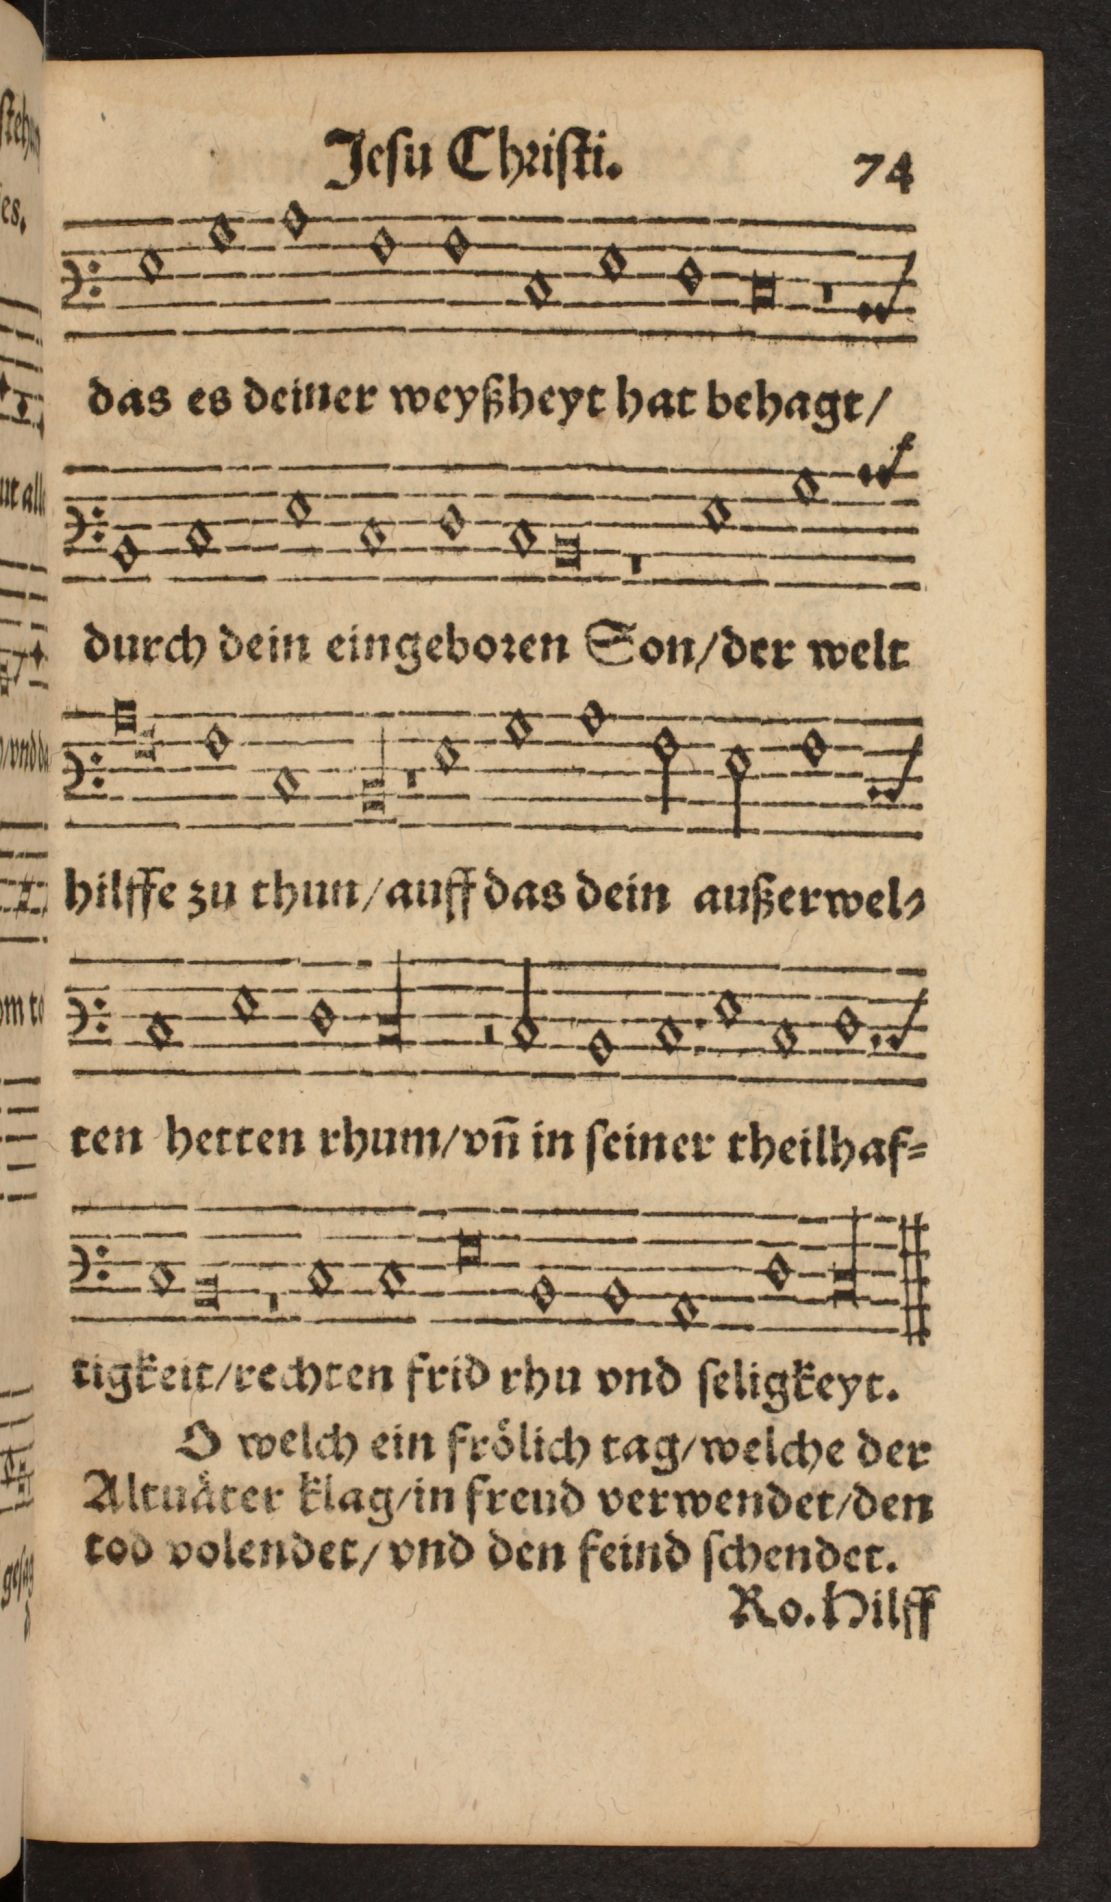 Jesu Christi. 74
das es deiner weyßheyt hat behagt/
durch dein eingeboren Son/der welt
hilffe zu thun/auff das dein außerwel⸗
ten hetten rhum/vn̄ in seiner theilhaf⸗
tigkeit/rechten frid rhu vnd seligkeyt.
O welch ein frölich tag/welche der
Altuäter klag/in freud verwendet/den
tod volendet/vnd den feind schendet.
Ro. Hilff